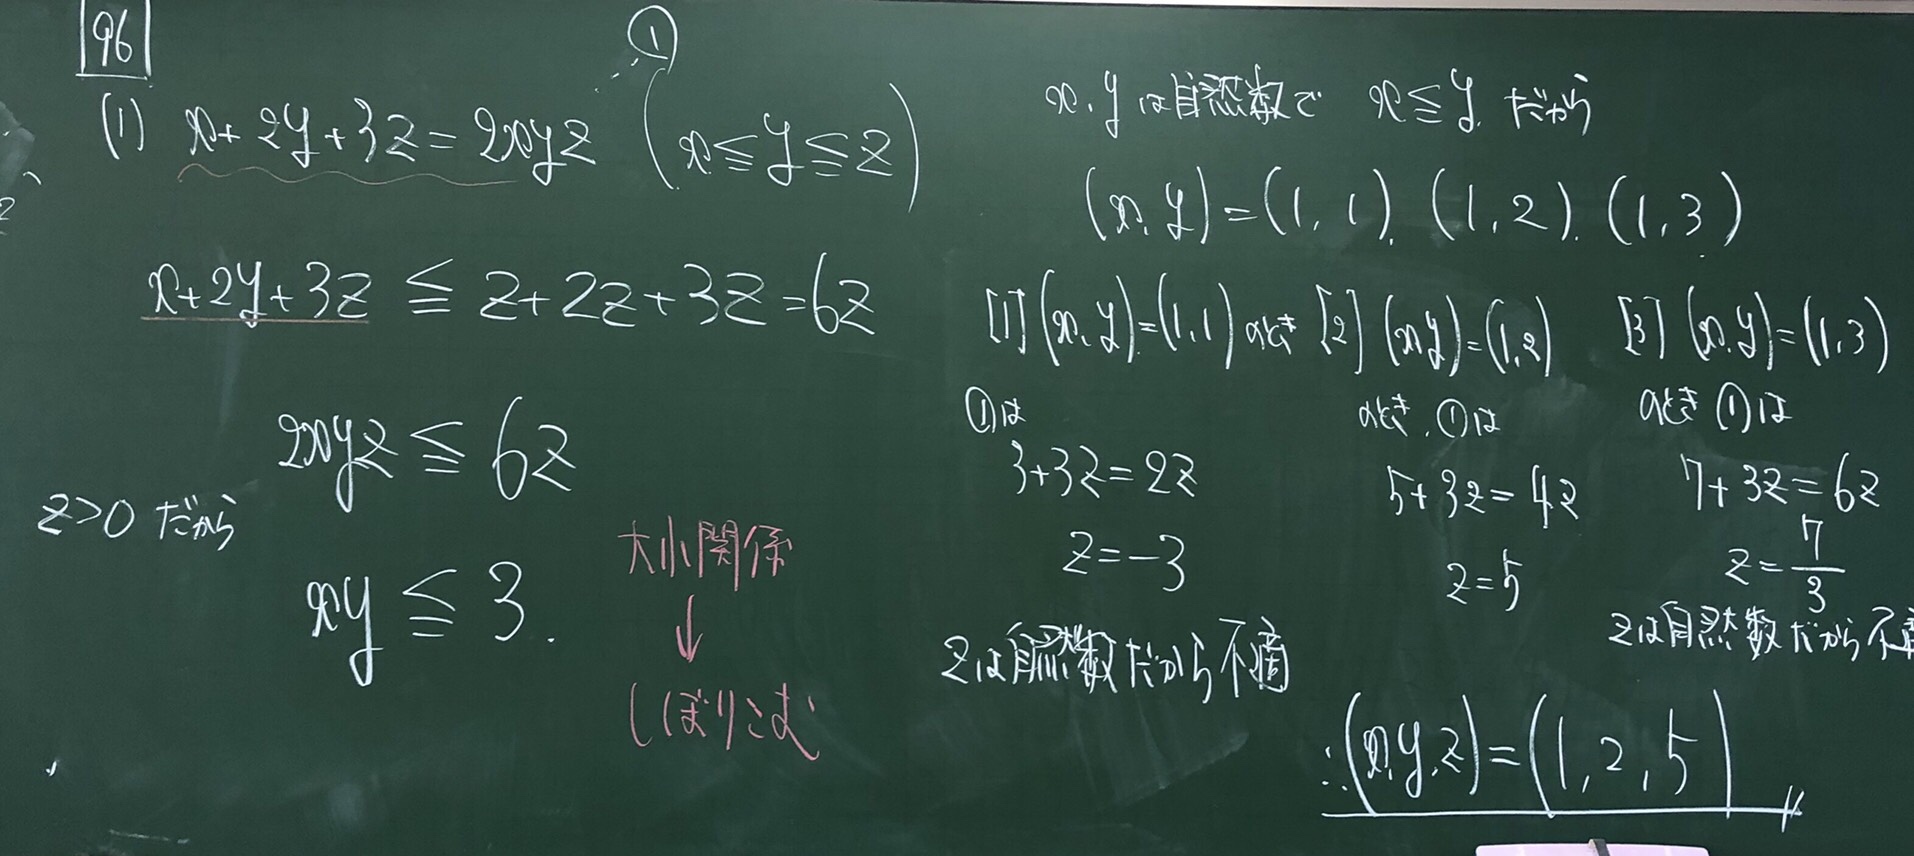 96
①
(1) x+2y+3z=2xyz (x≦y≦z)
x+2y+3z ≦ z+2z+3z=6z
2xyz ≦ 6z
z>0 だから
xy ≦ 3.
大小関係
↓
しぼりこむ
x,yは自然数で x≦y だから
(x,y)=(1,1),(1,2),(1,3)
[1](x,y)=(1,1)のとき
①は
3+3z=2z
z=-3
zは自然数だから不適
[2](x,y)=(1,2)
のとき,①は
5+3z=4z
z=5
[3](x,y)=(1,3)
のとき①は
7+3z=6z
z=7/3
zは自然数だから不適
∴(x,y,z)=(1,2,5)